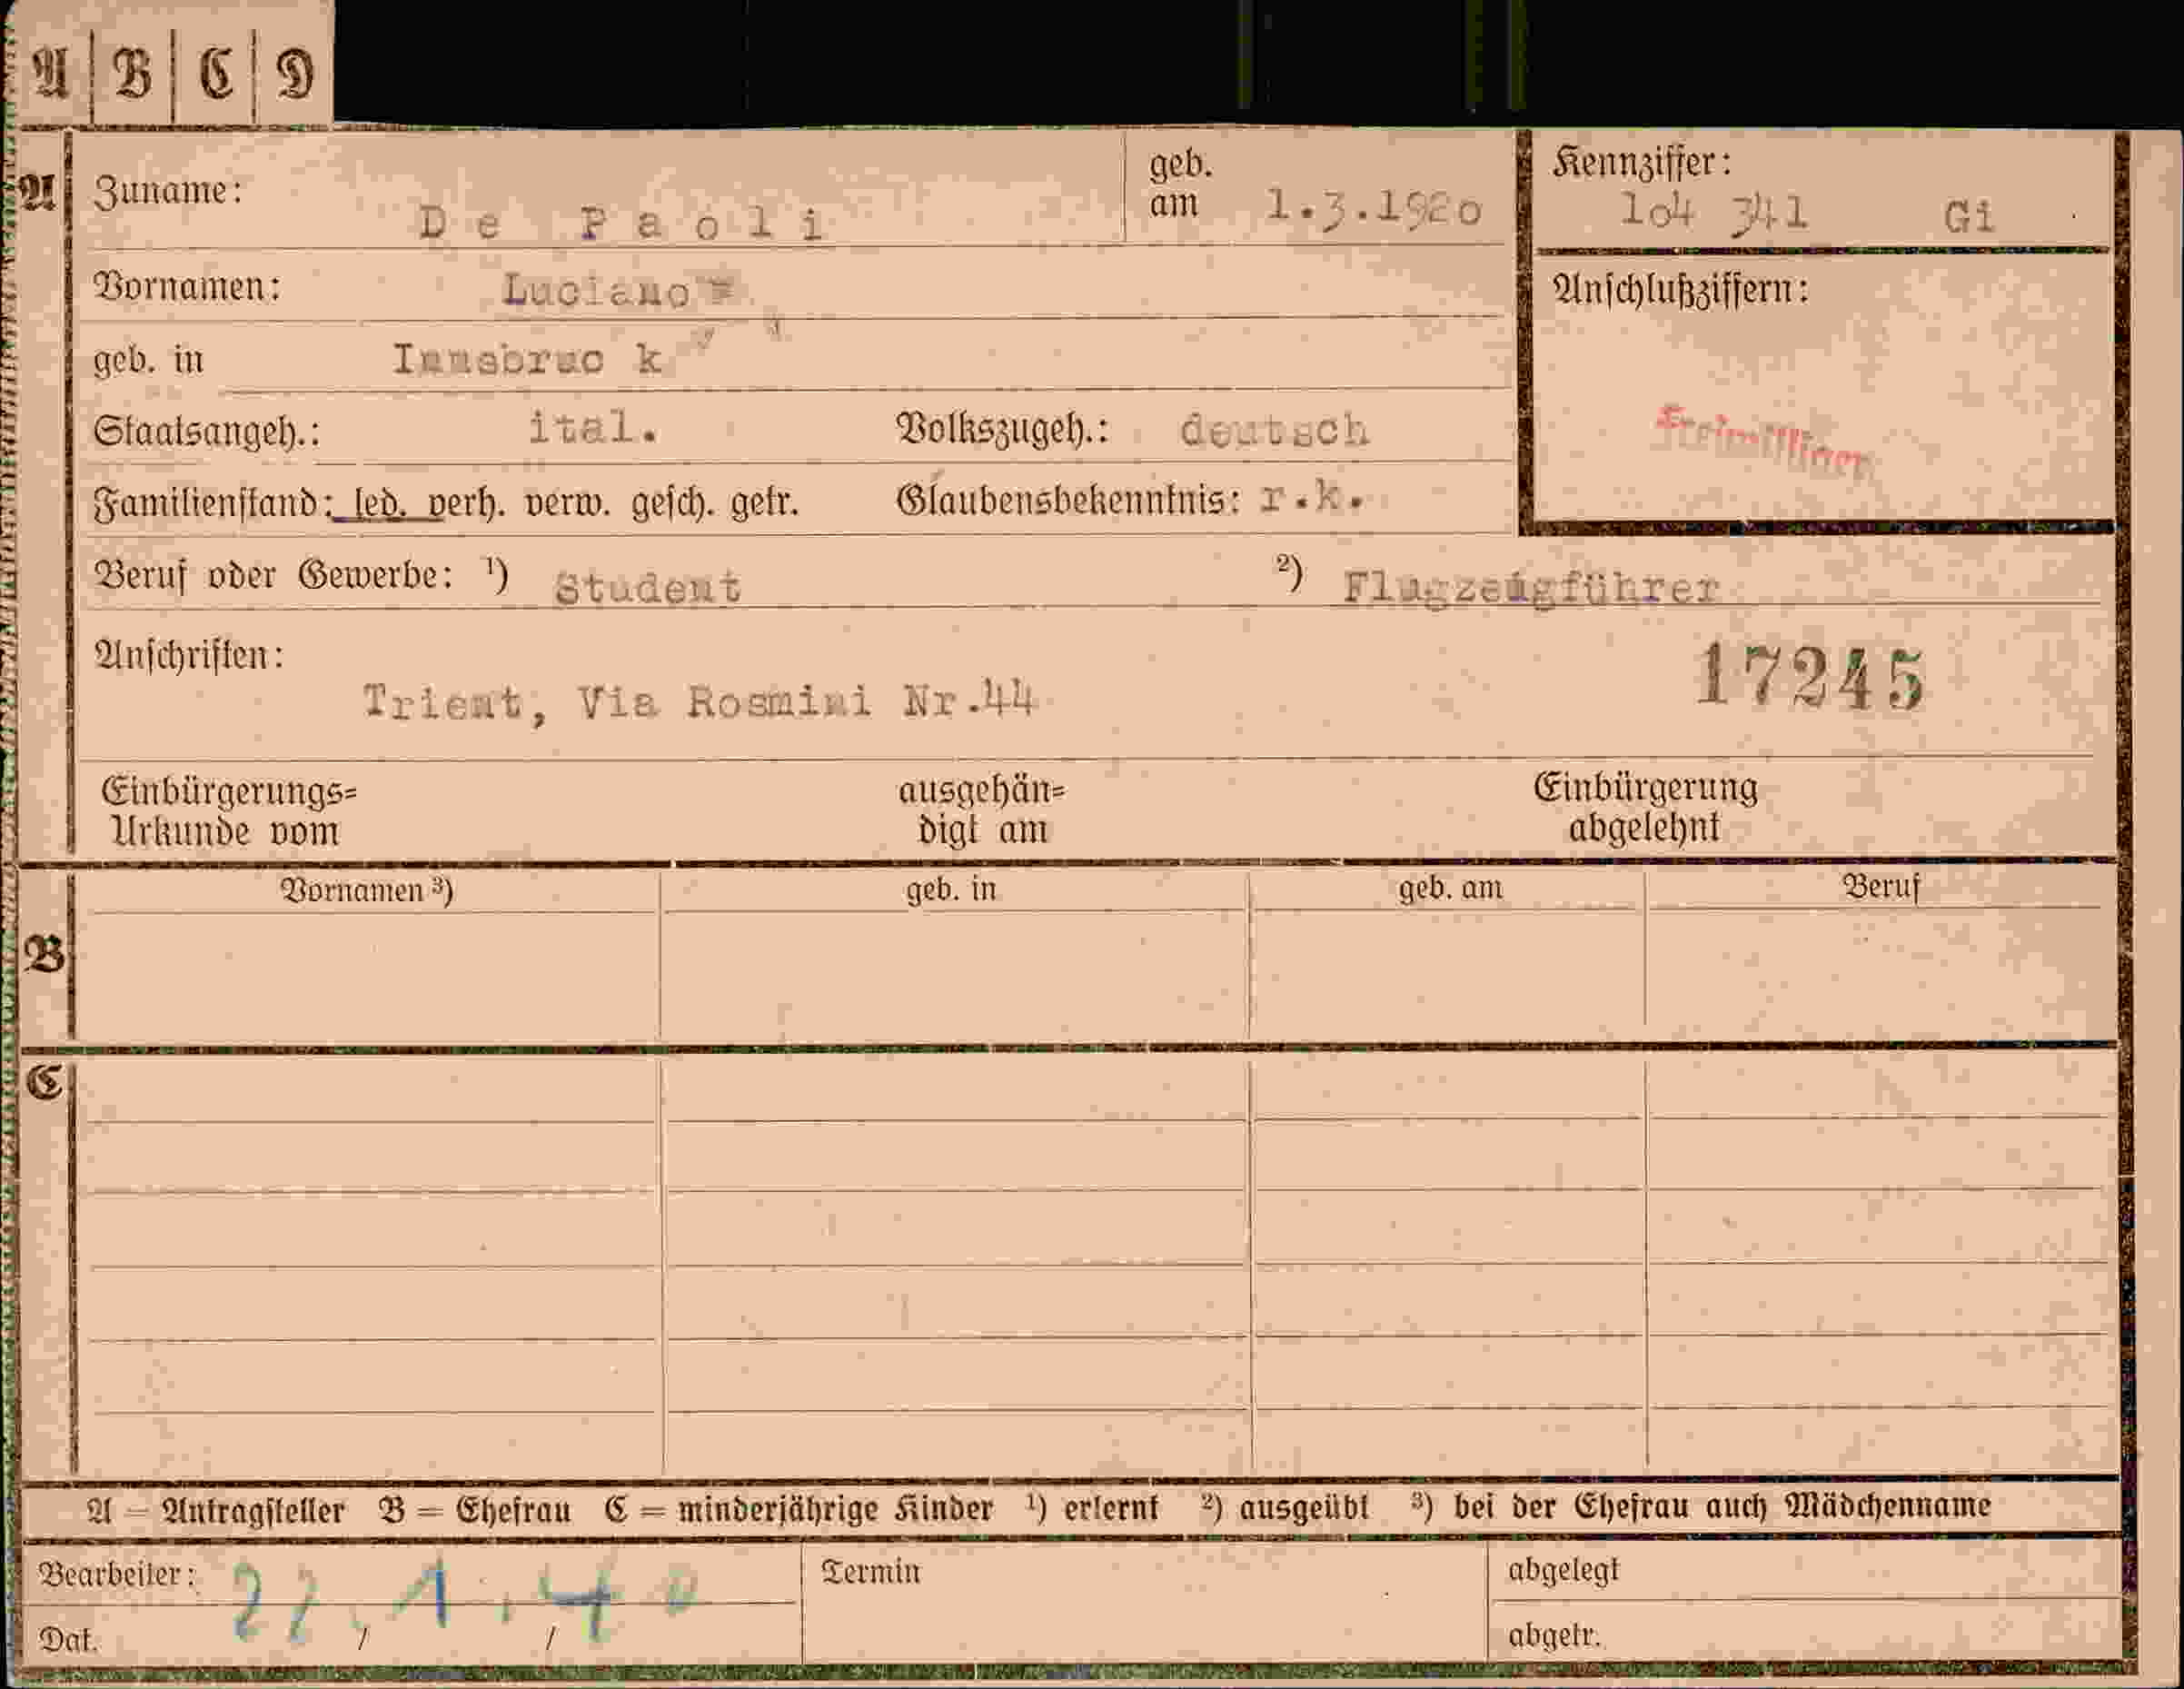 A B C D
A Zuname: De Paoli geb. am 1.3.1920 Kennziffer: 104 341 Gi
Vornamen: Luciano Anschlußziffern:
geb. in Innsbruc k
Freiwilliger
Staatsangeh.: ital. Volkszugeh.: deutsch
Familienstand: led. verh. verw. gesch. getr. Glaubensbekenntnis: r.k.
Beruf oder Gewerbe: ¹) Student ²) Flugzeugführer
Anschriften:
Trient, Via Rosmini Nr.44 17245
Einbürgerungs= Urkunde vom ausgehän= digt am Einbürgerung abgelehnt
B Vornamen ³) geb. in geb. am Beruf
C
A – Antragsteller B = Ehefrau C = minderjährige Kinder ¹) erlernt ²) ausgeübt ³) bei der Ehefrau auch Mädchenname
Bearbeiter: Termin abgelegt
22.1.40
Dat. / / abgetr.